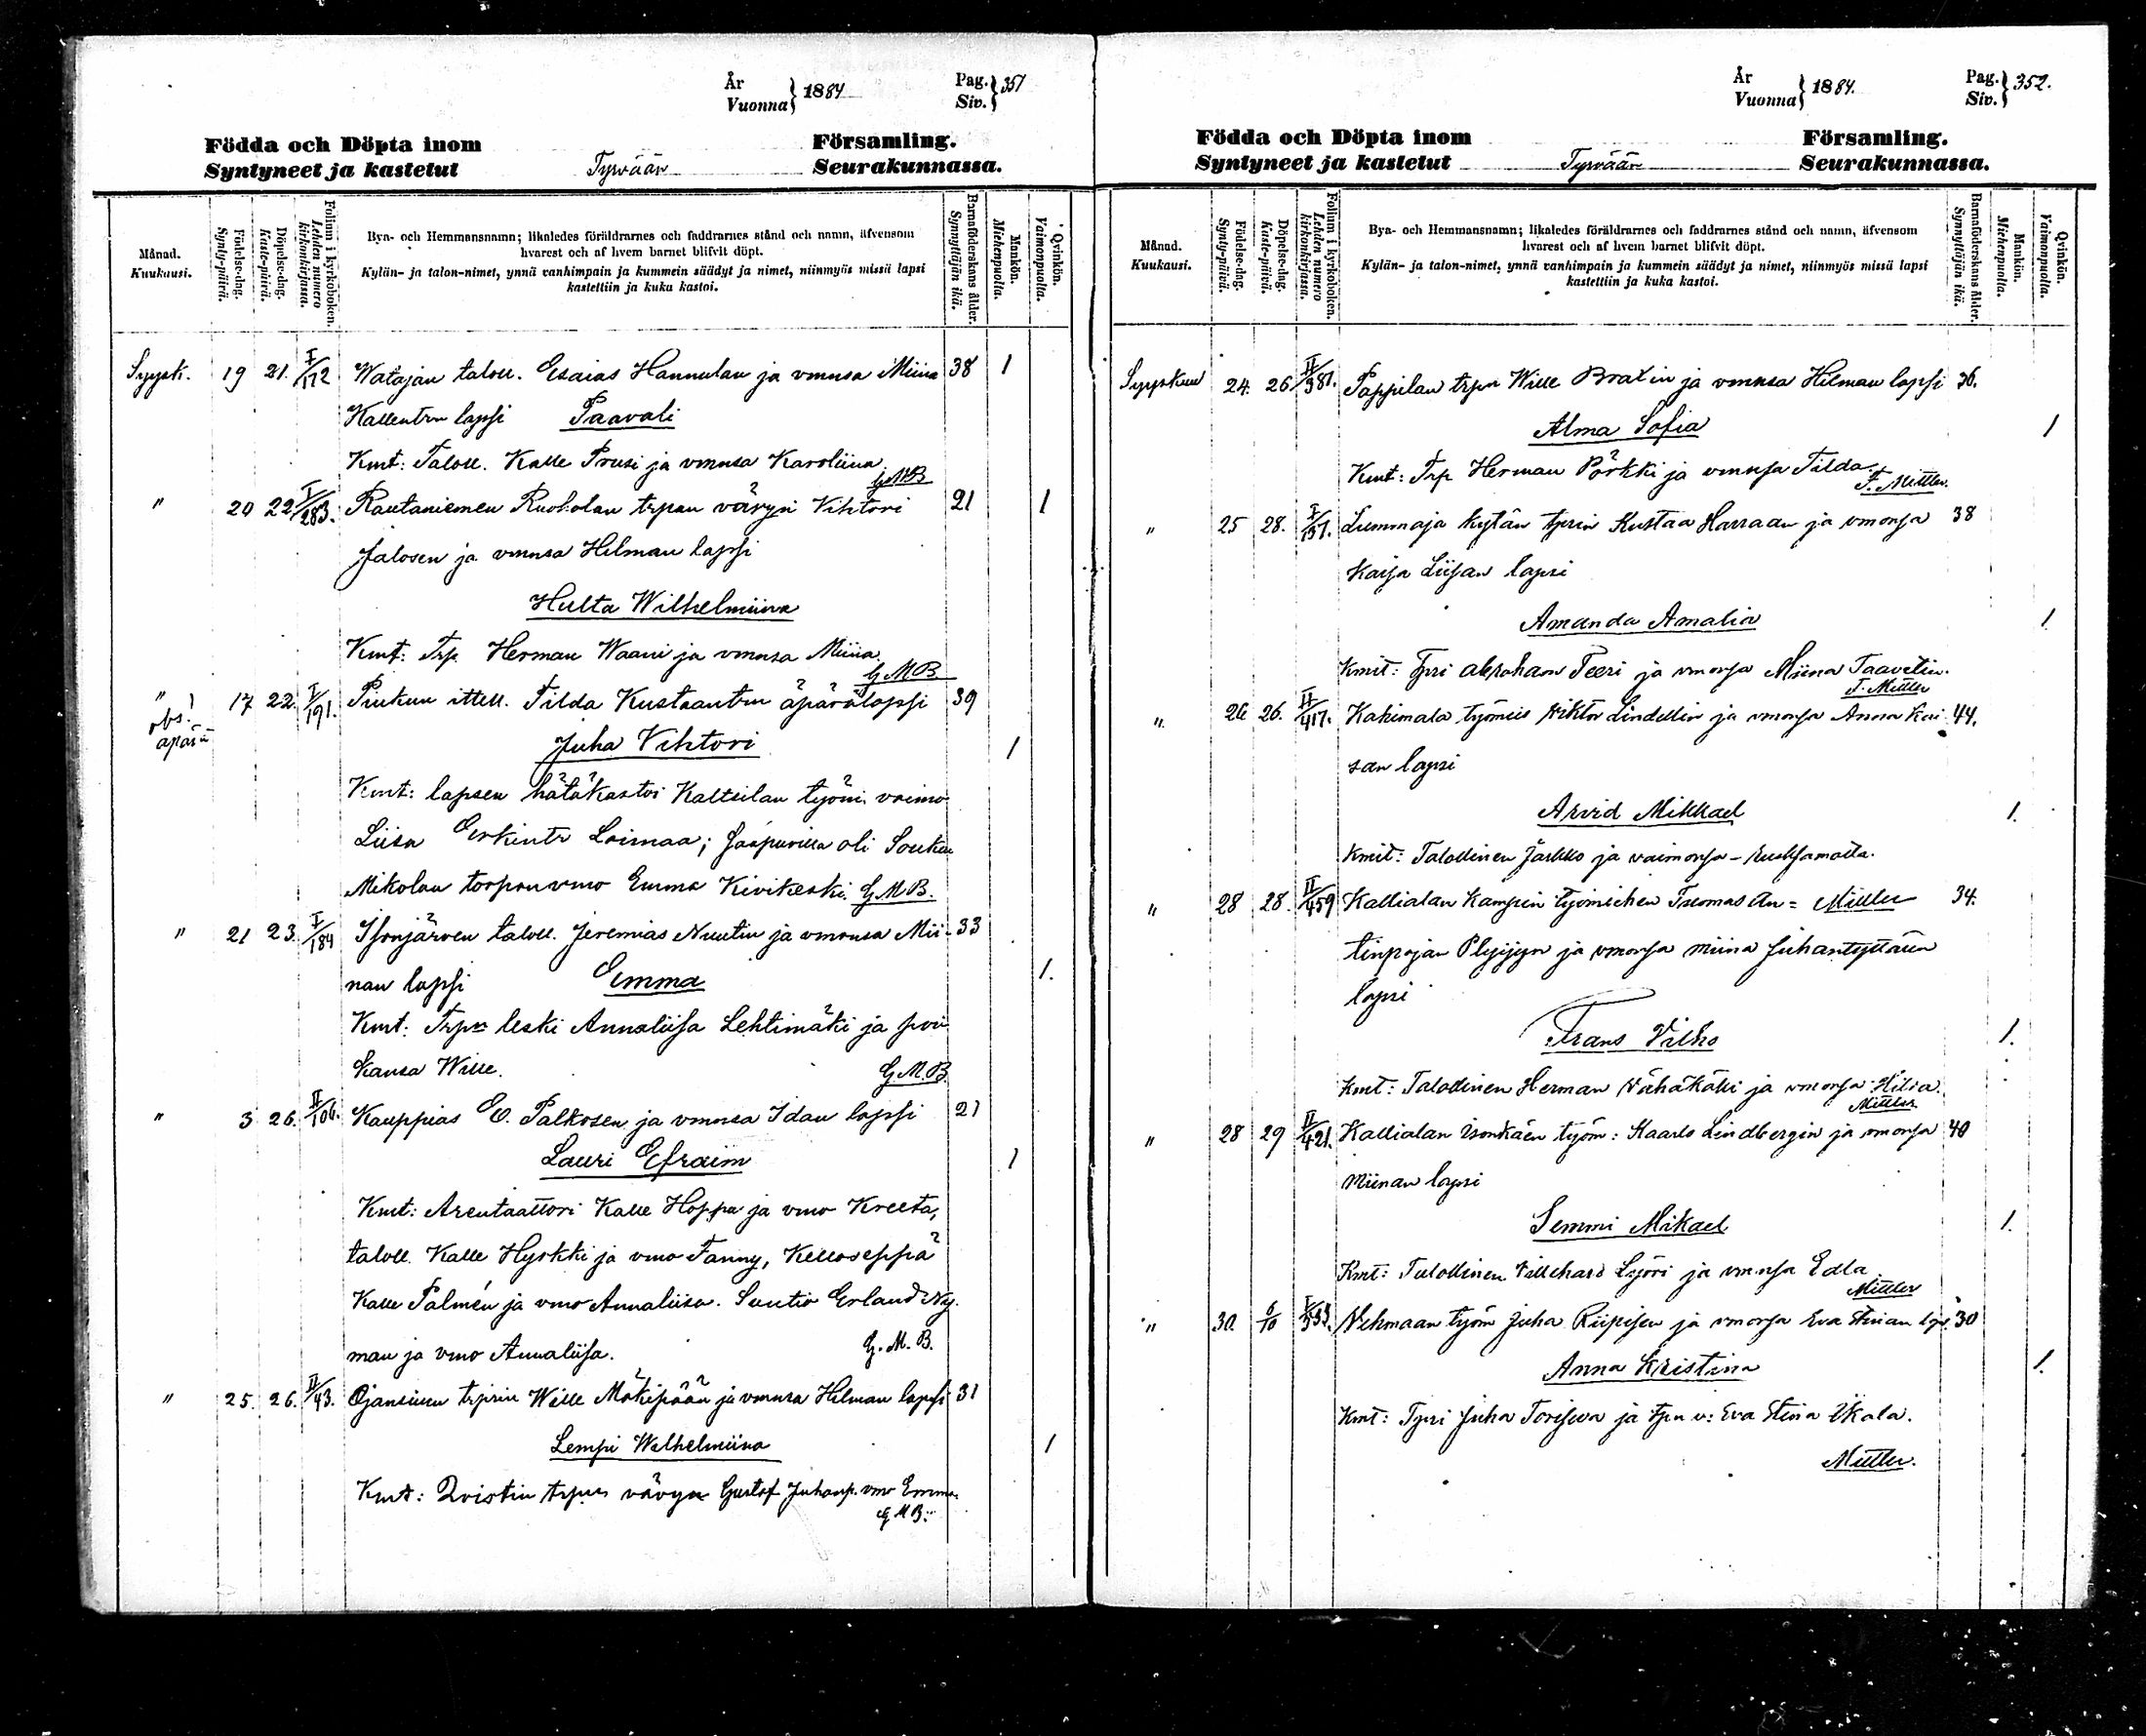 År
Vuonna } 1884
Pag.
Siv. } 351
Födda och Döpta inom Församling.
Syntyneet ja kastetut Tyrvään Seurakunnassa.
Månad.
Kuukausi.
Födelse-dag.
Synty-päivä.
Döpelse-dag.
Kaste-päivä.
Folium i kyrkoboken.
Lehden numero kirkonkirjassa.
Bya- och Hemmansnamn; likaledes föräldrarnes och faddrarnes stånd och namn, äfvensom
hvarest och af hvem barnet blifvit döpt.
Kylän- ja talon-nimet, ynnä vanhimpain ja kummein säädyt ja nimet, niinmyös missä lapsi
kastettiin ja kuka kastoi.
Barnaföderskans ålder.
Synnyttäjän ikä.
Mankön.
Miehenpuolta.
Qvinkön.
Vaimonpuolta.
Syysk. 19 21. I/112 Watajan taloll. Esaias Hannulan ja vmnsa Miina 38 1
Kallentrn lapsi Paavali
Kmt: Taloll. Kalle Prusi ja vmnsa Karoliina
G.M.B
" 20 22 I/283. Rautaniemen Ruoholan trpan vävyn Vihtori 21 1
Jalosen ja vmnsa Hilman lapsi
Hulta Wilhelmiina
Kmt: Trp. Herman Waani ja vmnsa Miina.
G.M.B
" obs! äpärä 17 22. I/191. Piukun ittell. Tilda Kustaantrn äpärälapsi 39
Juha Vihtori 1
Kmt: lapsen hätäkastoi Kaltsilan työm. vaimo
Liisa Erkintr Loimaa; saapuvilla oli Soukon
Mikolan torpanvmo Emma Kivikoski. G.M.B.
" 21 23. I/184 Isonjärven taloll. Jeremias Nuutin ja vmonsa Mii- 33
nan lapsi Emma 1.
Kmt: Trpn leski Annaliisa Lehtimäki ja poi
kansa Wille. G.M.B
" 3 26. II/106. Kauppias E. Palkosen ja vmnsa Idan lapsi 21
Lauri Efraim 1
Kmt: Arentaattori Kalle Hoppu ja vmo Kreeta,
taloll. Kalle Hyrkki ja vmo Fanny, Kelloseppä
Kalle Palmén ja vmo Annaliisa. Suutio Erland Ny-
man ja vmo Annaliisa. G.M.B.
" 25. 26. II/43. Ojansuun trpiin Wille Mäkipään ja vmnsa Hilman lapsi 31
Lempi Wilhelmiina 1
Kmt: Qvistin trpn vävyn Gustaf Juhanp. vmo Emma.
G M B.
År
Vuonna } 1884.
Pag.
Siv. } 352.
Födda och Döpta inom Församling.
Syntyneet ja kastetut Tyrvään Seurakunnassa.
Månad.
Kuukausi.
Födelse-dag.
Synty-päivä.
Döpelse-dag.
Kaste-päivä.
Folium i kyrkoboken.
Lehden numero kirkonkirjassa.
Bya- och Hemmansnamn; likaledes föräldrarnes och faddrarnes stånd och namn, äfvensom
hvarest och af hvem barnet blifvit döpt.
Kylän- ja talon-nimet, ynnä vanhimpain ja kummein säädyt ja nimet, niinmyös missä lapsi
kastettiin ja kuka kastoi.
Barnaföderskans ålder.
Synnyttäjän ikä.
Mankön.
Miehenpuolta.
Qvinkön.
Vaimonpuolta.
Syyskuu 24. 26 II/381. Pappilan trpn Wille Bratin ja vmnsa Hilman lapsi 36.
Alma Sofia 1
Kmt: Trp Herman Pörkki ja vmnsa Tilda.
F. Mittler.
" 25 28. I/157. Lummaja kylän tprin Kustaa Harraan ja vmonsa 38
Kaisa Liisan lapsi
Amanda Amalia 1.
Kmit: Tpri Abraham Teeri ja vmonsa Miina Taavetin.
F. Mittler
" 26 26. II/417. Kakimala työmies Viktor Lindellin ja vmonsa Anna Kai 44.
san lapsi
Arvid Mikkael 1.
Kmit: Talollinen Jaakko ja vaimonsa - Ruuksamalta.
" 28 28. II/459 Kallialan Kampin työmiehen Tuomas An= Mittler 34.
tinpojan Plyijyn ja vmonsa Miina Juhantyttären
lapsi
Frans Vilho 1.
Kmt: Talollinen Herman Vähäkälli ja vmonsa Hilia.
Mittler
" 28 29 II/421. Kallialan Isonkäen työm: Kaarlo Lindbergin ja vmonsa 40
Miinan lapsi
Semmi Mikael 1.
Kmt: Talollinen Villehard Lyöri ja vmnsa Edla.
Mittler
" 30. 6/10 I/333. Vehmaan työm Juha Riipisen ja vmonsa Eva Stinan lps. 30
Anna Kristina 1.
Kmt: Tpri Juha TorisEva ja tpn v: Eva Stina Ukala.
Mittler.